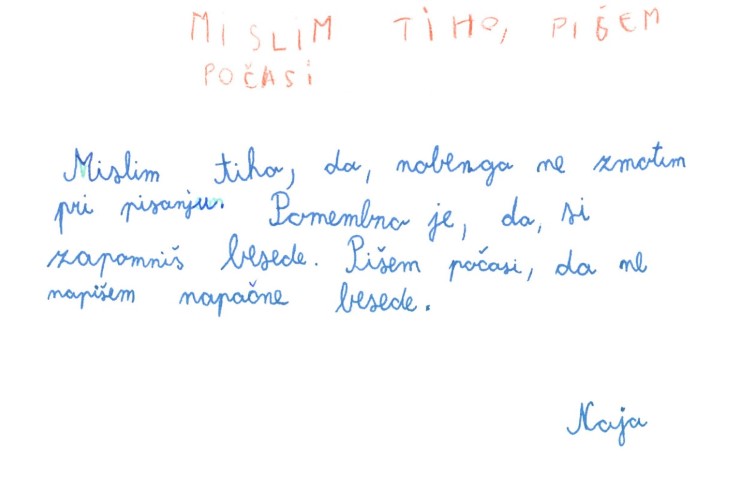 MISLIM TIHO, PIŠEM
POČASI
Mislim tiho, da, nobenga ne zmotim
pri pisanju. Pomembno je, da, si
zapomniš besede. Pišem počasi, da ne
napišem napačne besede.
Naja